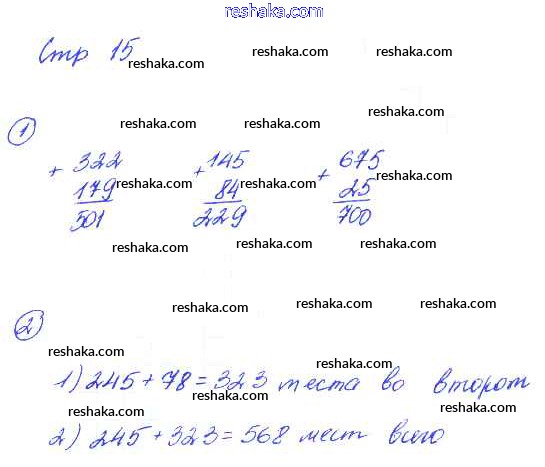 reshaka.com
Стр 15
reshaka.com reshaka.com reshaka.com
reshaka.com
1
reshaka.com reshaka.com
+ 322 + 145 + 675
179 reshaka.com 84 reshaka.com 25 reshaka.com
501 229 700
reshaka.com reshaka.com reshaka.com
reshaka.com reshaka.com reshaka.com
2)
reshaka.com reshaka.com
1) 245 + 78 = 323 места во втором
reshaka.com reshaka.com reshaka.com reshaka.com
2) 245 + 323 = 568 мест всего